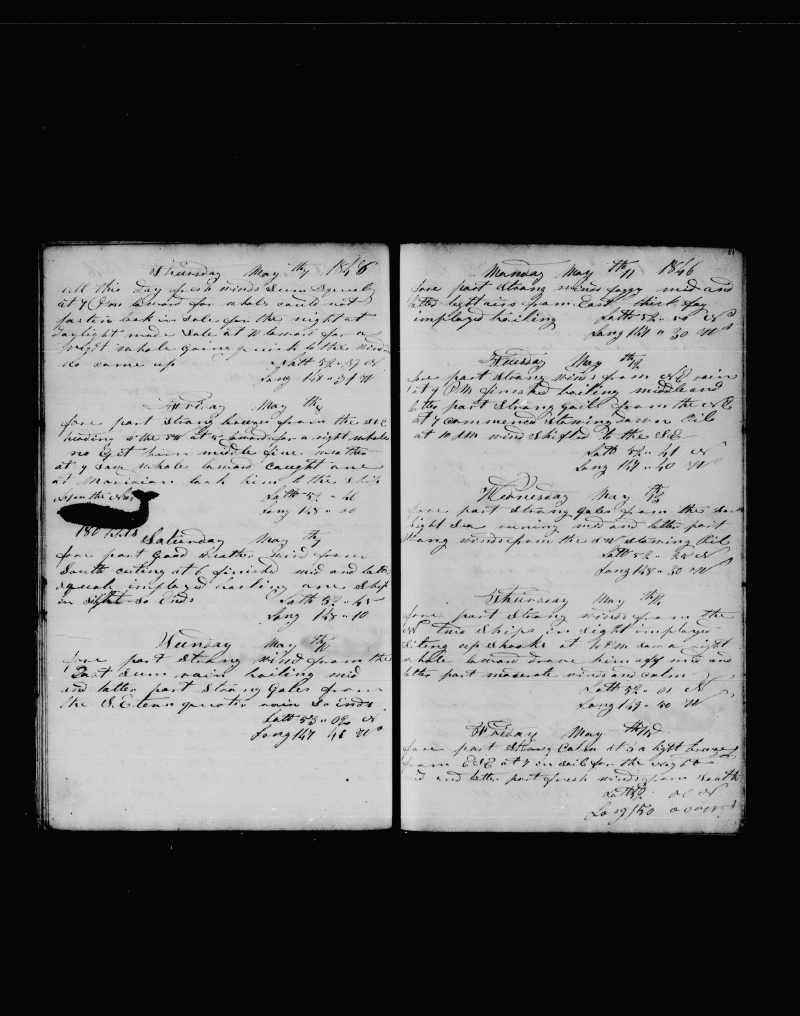 Thursday May th7 1846
all this Day fresh winds Sum Squaly
at 7 lowerd for whale could not
fasten took in Sale for the night at
Daylight made Sale at 10 lowerd for a
right whale going quick to the wind
no came up Latt 52 " 57 N
Long 148 " 51 W
Friday May th8
fore part Strong breezes from the
heading the SW at lowerd for a right whale
no get him middle fine weather
at 9 Saw whales lowerd caught one
at Maridian took him to the Ship
Latt 52 " 46
Long 148 " 00
180 bbls
Saturday May th9
fore part Good weather wind from
South cuting at 6 finished mid and latter
Squaly imployed boiling one Ship
in Sight So Ends Latt 52 " 45
Long 148 " 10
Sunday May th10
fore part Strong wind from the
East Sum rain boiling mid
and latter part Strong Gales from
the S.E. rain So Ends
Latt 53 " 02 N
Long 147 46 W
51
Monday May th11 1846
fore part Strong winds foggy mid and
latter light airs from East thick fog
imployed boiling Latt 52 " 50 N
Long 147 " 30 W
Tuesday May th12
fore part Strong wind from NE rain
at 9 PM finished boiling middle and
latter part Strong Gails from the NE
at 7 commenced Stowing down Oil
at 10 AM wind Shifted to the SE
Latt 52 " 41 N
Long 147 " 40 W
Wednesday May th13
fore part Strong Gales from the
hight Sea runing mid and latter part
Strong winds from the SW Stowing Oil
Latt 52 " 25 N
Long 148 " 30 W
Thursday May th14
fore part Strong winds from the
W two Ships in Sight imployed
Siting up Shooks at 4 PM Saw a right
whale lowerd drove him off mid and
latter part moderate winds and calm
Latt 52 " 01 N
Long 149 " 50 W
Friday May th15
fore part Strong Calm at 3 a light breeze
from ESE at 7 in Sail for the night
mid and latter part fresh winds from South
Latt 52 00 N
Long 150 00 W